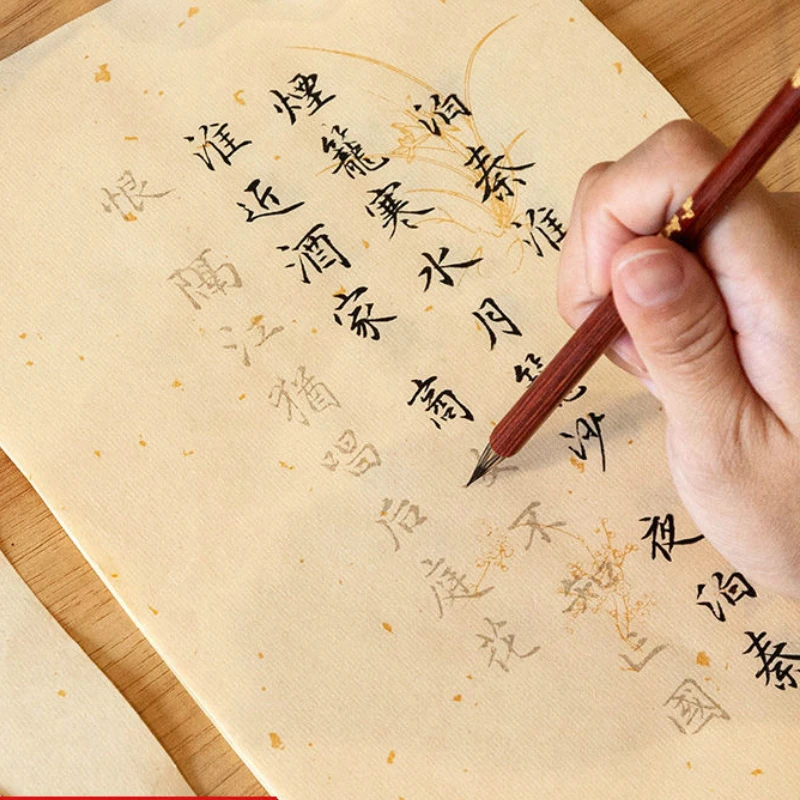 泊秦淮
煙籠寒水月籠沙夜泊秦
淮近酒家商不知亡國
恨隔江猶唱后庭花